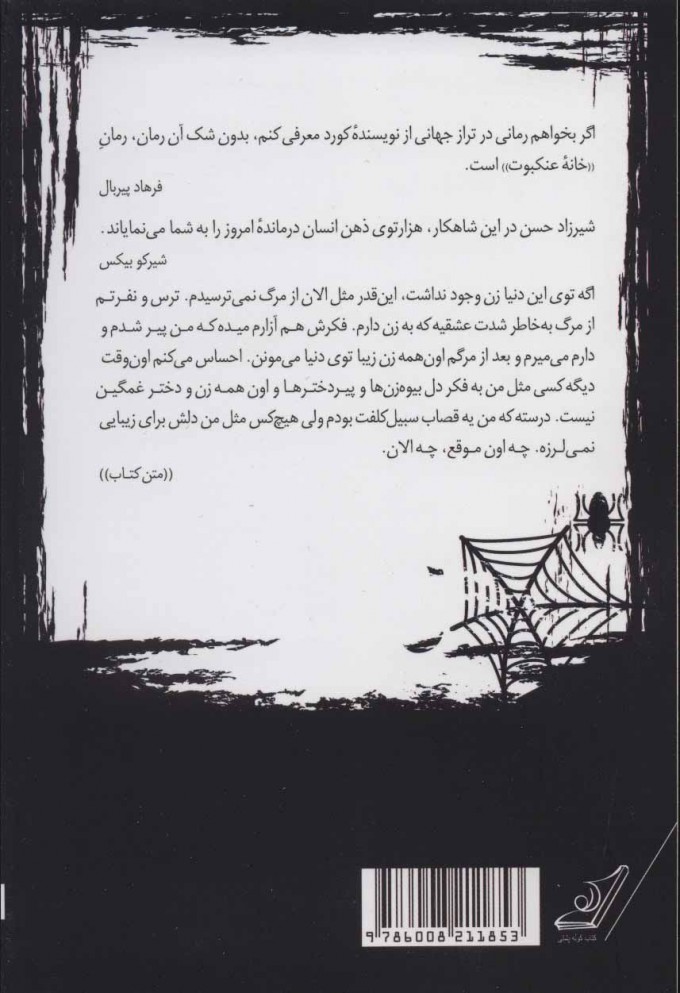 اگر بخواهم رمانی در تراز جهانی از نویسندهٔ کورد معرفی کنم، بدون شک آن رمان، رمانِ
((خانهٔ عنکبوت)) است.
فرهاد پیربال
شیرزاد حسن در این شاهکار، هزارتوی ذهن انسان درماندهٔ امروز را به شما می‌نمایاند.
شیرکو بیکس
اگه توی این دنیا زن وجود نداشت، این‌قدر مثل الان از مرگ نمی‌ترسیدم. ترس و نفرتم
از مرگ به‌خاطر شدت عشقیه که به زن دارم. فکرش هم آزارم میده که من پیر شدم و
دارم می‌میرم و بعد از مرگم اون‌همه زن زیبا توی دنیا می‌مونن. احساس می‌کنم اون‌وقت
دیگه کسی مثل من به فکر دل بیوه‌زن‌ها و پیردخترها و اون همه زن و دختر غمگین
نیست. درسته که من یه قصاب سبیل‌کلفت بودم ولی هیچ‌کس مثل من دلش برای زیبایی
نمی‌لرزه. چه اون موقع، چه الان.
((متن کتاب))
9 786008 211853
کتاب کوله پشتی